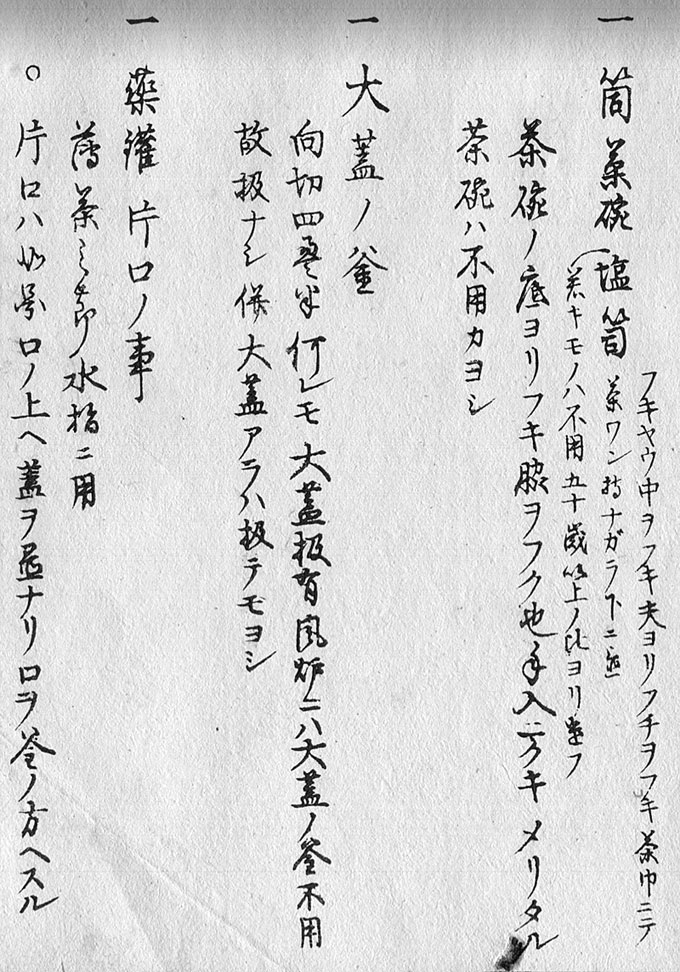 一 筒茶碗 塩筒
フキヤウ中ヲフキ夫ヨリフチヲフキ茶巾ニテ
茶ワン持ナガラ下ニ置
若キモノハ不用五十歳以上ノ比ヨリ遣フ
茶碗ノ底ヨリフキ脇ヲフク也手入ニクキメリタル
茶碗ハ不用カヨシ
一 大蓋ノ釜
向切四畳半何レモ大蓋扱有風炉ニハ大蓋ノ釜不用
故扱ナシ併大蓋アラハ扱テモヨシ
一 薬鑵片口ノ事
薄茶之節水指ニ用
○ 片口ハ如常口ノ上ヘ蓋ヲ置ナリ口ヲ釜ノ方ヘスル